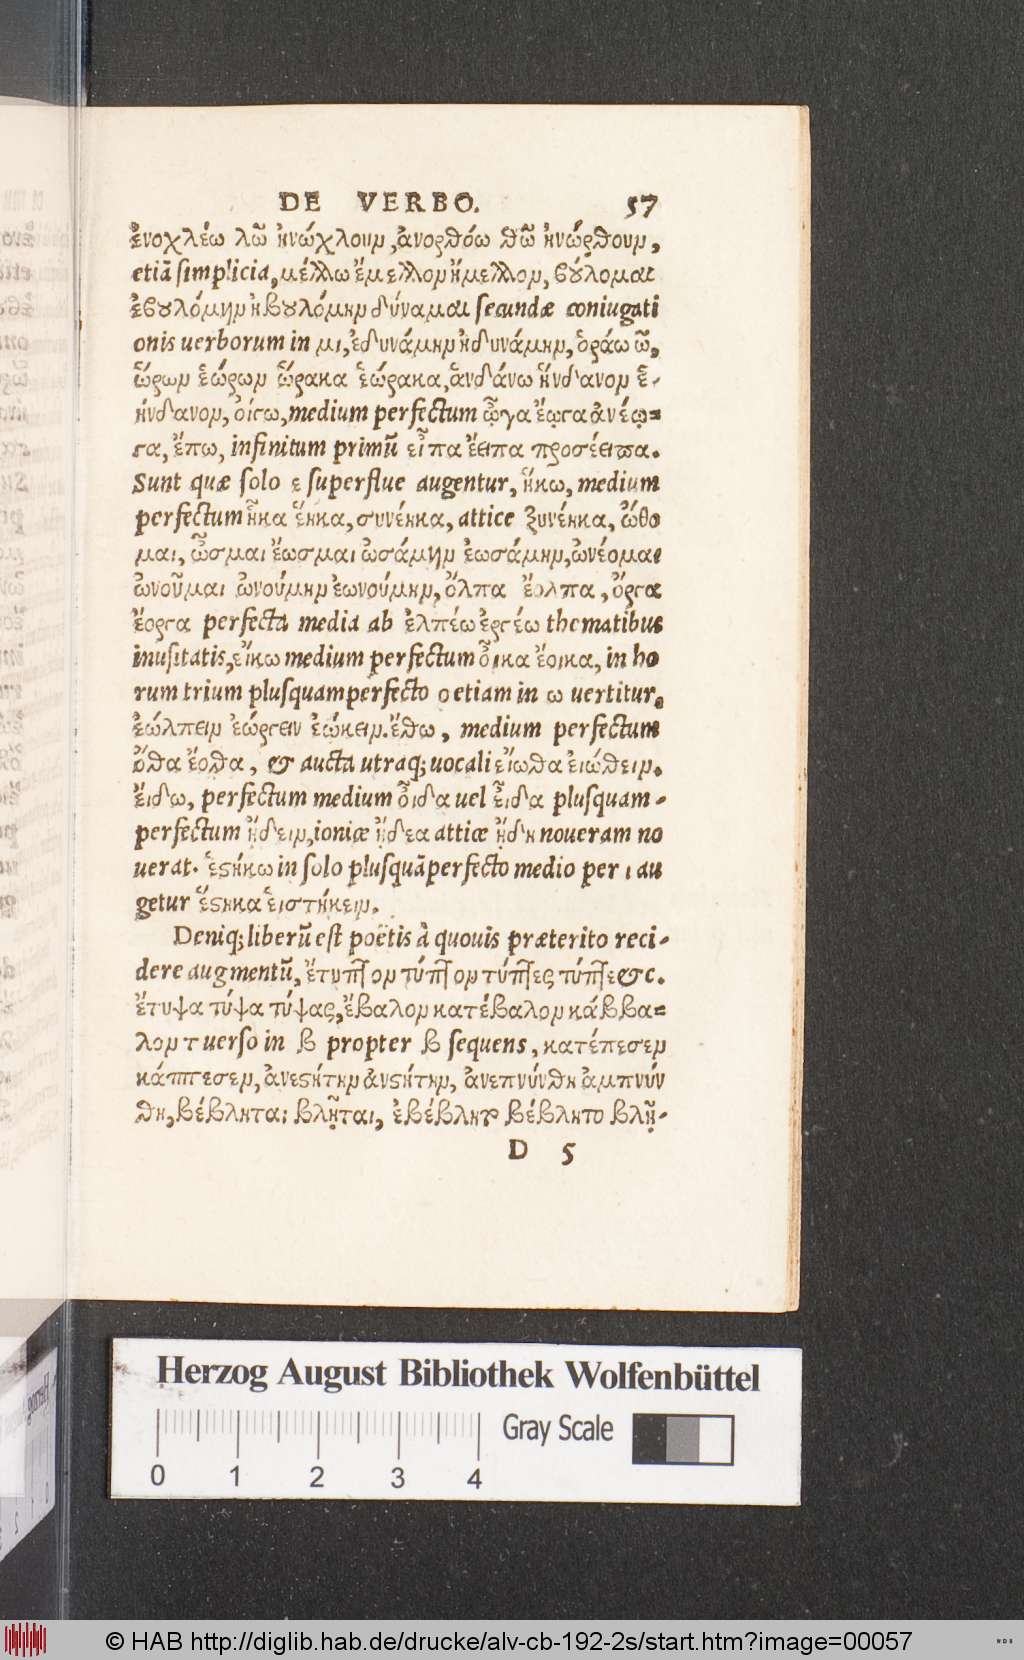 DE VERBO. 57
ἐνοχλέω λῶ ἠνώχλουν, ἀνορθόω θῶ ἠνώρθουν,
etiā simplicia, μέλλω ἔμελλον ἤμελλον, βούλομαι
ἐβουλόμην ἠβουλόμην δύναμαι secundæ coniugati
onis uerborum in μι, ἐδυνάμην ἠδυνάμην, ὁράω ῶ,
ὥρων ἑώρων ὥρακα ἑώρακα, ἁνδάνω ἥνδανον ἑ-
ήνδανον, οἴγω, medium perfectum ᾦγα ἔῳγα ἀνέῳ=
γα, ἔπω, infinitum primū εἶπα ἔειπα προσέειπα.
Sunt quæ solo ε superflue augentur, ἥκω, medium
perfectum ἧκα ἕηκα, συνέηκα, attice ξυνέηκα, ὤθο
μαι, ὦσμαι ἔωσμαι ὠσάμην ἐωσάμην, ὠνέομαι
ὠνοῦμαι ὠνούμην ἐωνούμην, ὄλπα ἔολπα, ὄργα
ἔοργα perfecta media ab ἐλπέω ἐργέω thematibus
inusitatis, εἴκω medium perfectum οἶκα ἔοικα, in ho
rum trium plusquamperfecto o etiam in ω uertitur,
ἐώλπειν ἐώργειν ἐώκειν. ἔθω, medium perfectum
ὄθα ἔοθα, & aucta utraq; uocali εἴωθα εἰώθειν.
εἴδω, perfectum medium οἶδα uel εἶδα plusquam-
perfectum ᾔδειν, ioniæ ᾔδεα atticæ ᾔδη noueram no
uerat. ἑστήκω in solo plusquāperfecto medio per ι au
getur ἕστηκα εἱστήκειν.
Deniq; liberū est poëtis à quouis præterito reci-
dere augmentū, ἔτυπτον τύπτον τύπτες τύπτε &c.
ἔτυψα τύψα τύψας, ἔβαλον κατέβαλον κάββα=
λον τ uerso in β propter β sequens, κατέπεσεν
κάππεσεν, ἀνεστήτην ἀνστήτην, ἀνεπνύνθη ἀμπνύν
θη, βέβληται βλῆται, ἐβέβλητο βέβλητο βλῆ-
D 5
Herzog August Bibliothek Wolfenbüttel
Gray Scale
0 1 2 3 4
© HAB http://diglib.hab.de/drucke/alv-cb-192-2s/start.htm?image=00057